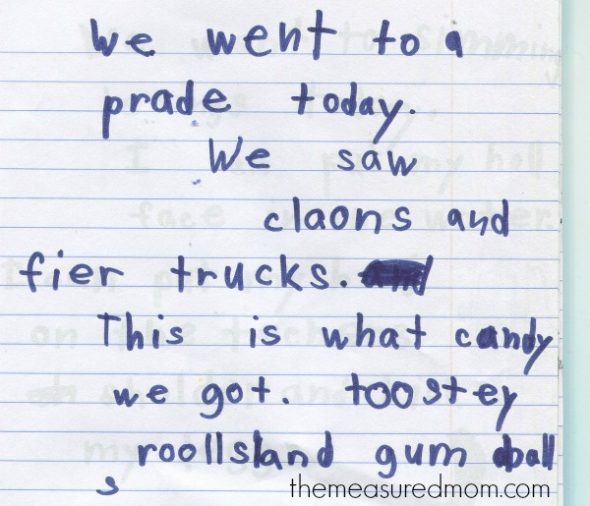 We went to a
prade today.
We saw
claons and
fier trucks. and
This is what candy
we got. toostey
roollsland gum ball
s
themeasuredmom.com